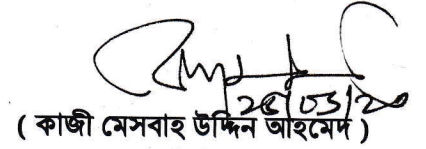 ২৫/০৩/২০
( কাজী মেসবাহ উদ্দিন আহমেদ )